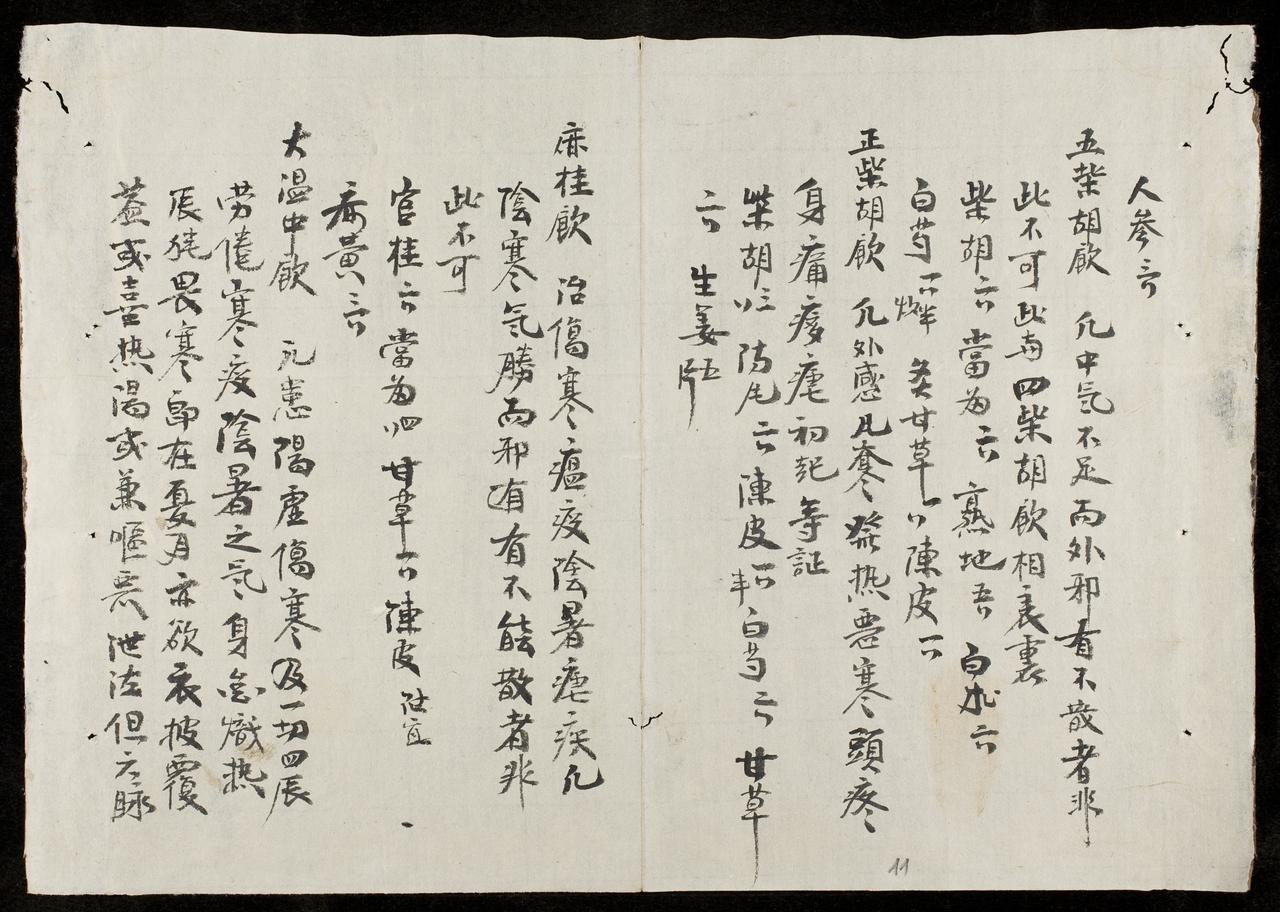 人參
五柴胡飲 凡中氣不足而外邪有不散者非
此不可此与四柴胡飲相表裏
柴胡 當归 熟地 白朮
白芍 炙甘草 陳皮
正柴胡飲 凡外感风寒發热惡寒頭疼
身痛痎瘧初起等証
柴胡 防风 陳皮 半 白芍 甘草
生姜 五片
麻桂飲 治傷寒瘟疫陰暑瘧疾凡
陰寒氣勝而邪有有不能散者非
此不可
官桂 當归 甘草 陳皮 隨宜
麻黄
大温中飲 凡患陽虛傷寒及一切四辰
劳倦寒疫陰暑之氣身虽熾热
辰犹畏寒即在夏月亦欲衣披覆
蓋或喜热湯或兼嘔恶泄泻但六脉
11